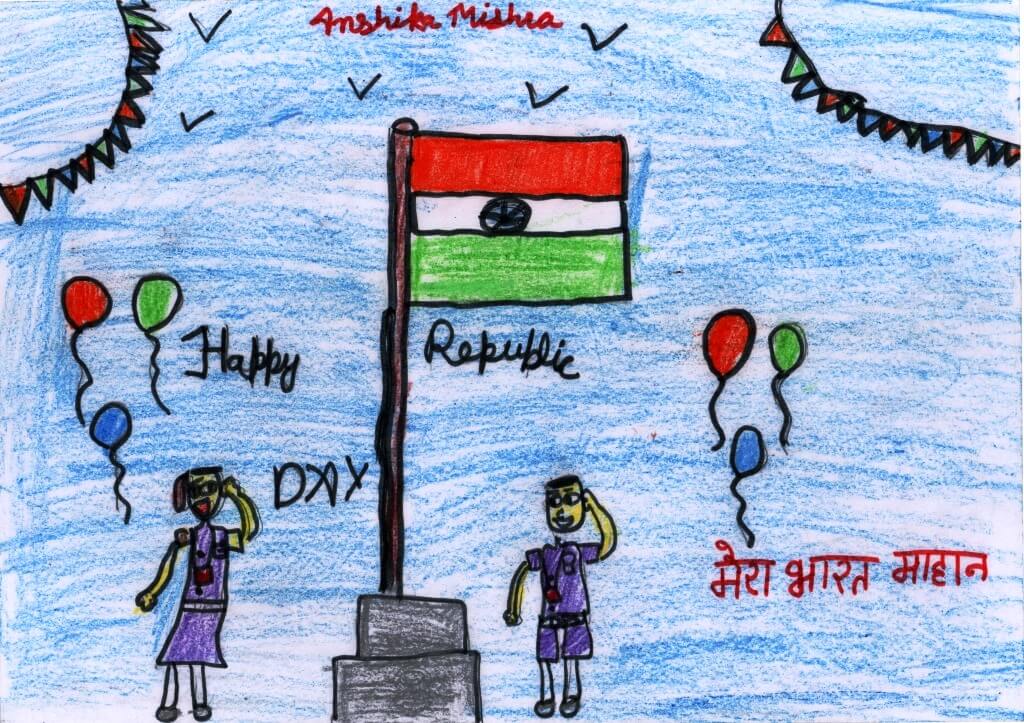 Anshika Mishra
Happy Republic
DAY
मेरा भारत माहान